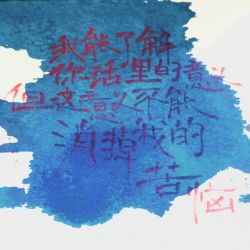 我能了解
你话里的意义
但这意义不能
消掉我的
苦
恼